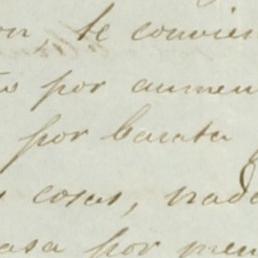 on te convien
s por aumen
por barata
s cosas, nada
asa por men